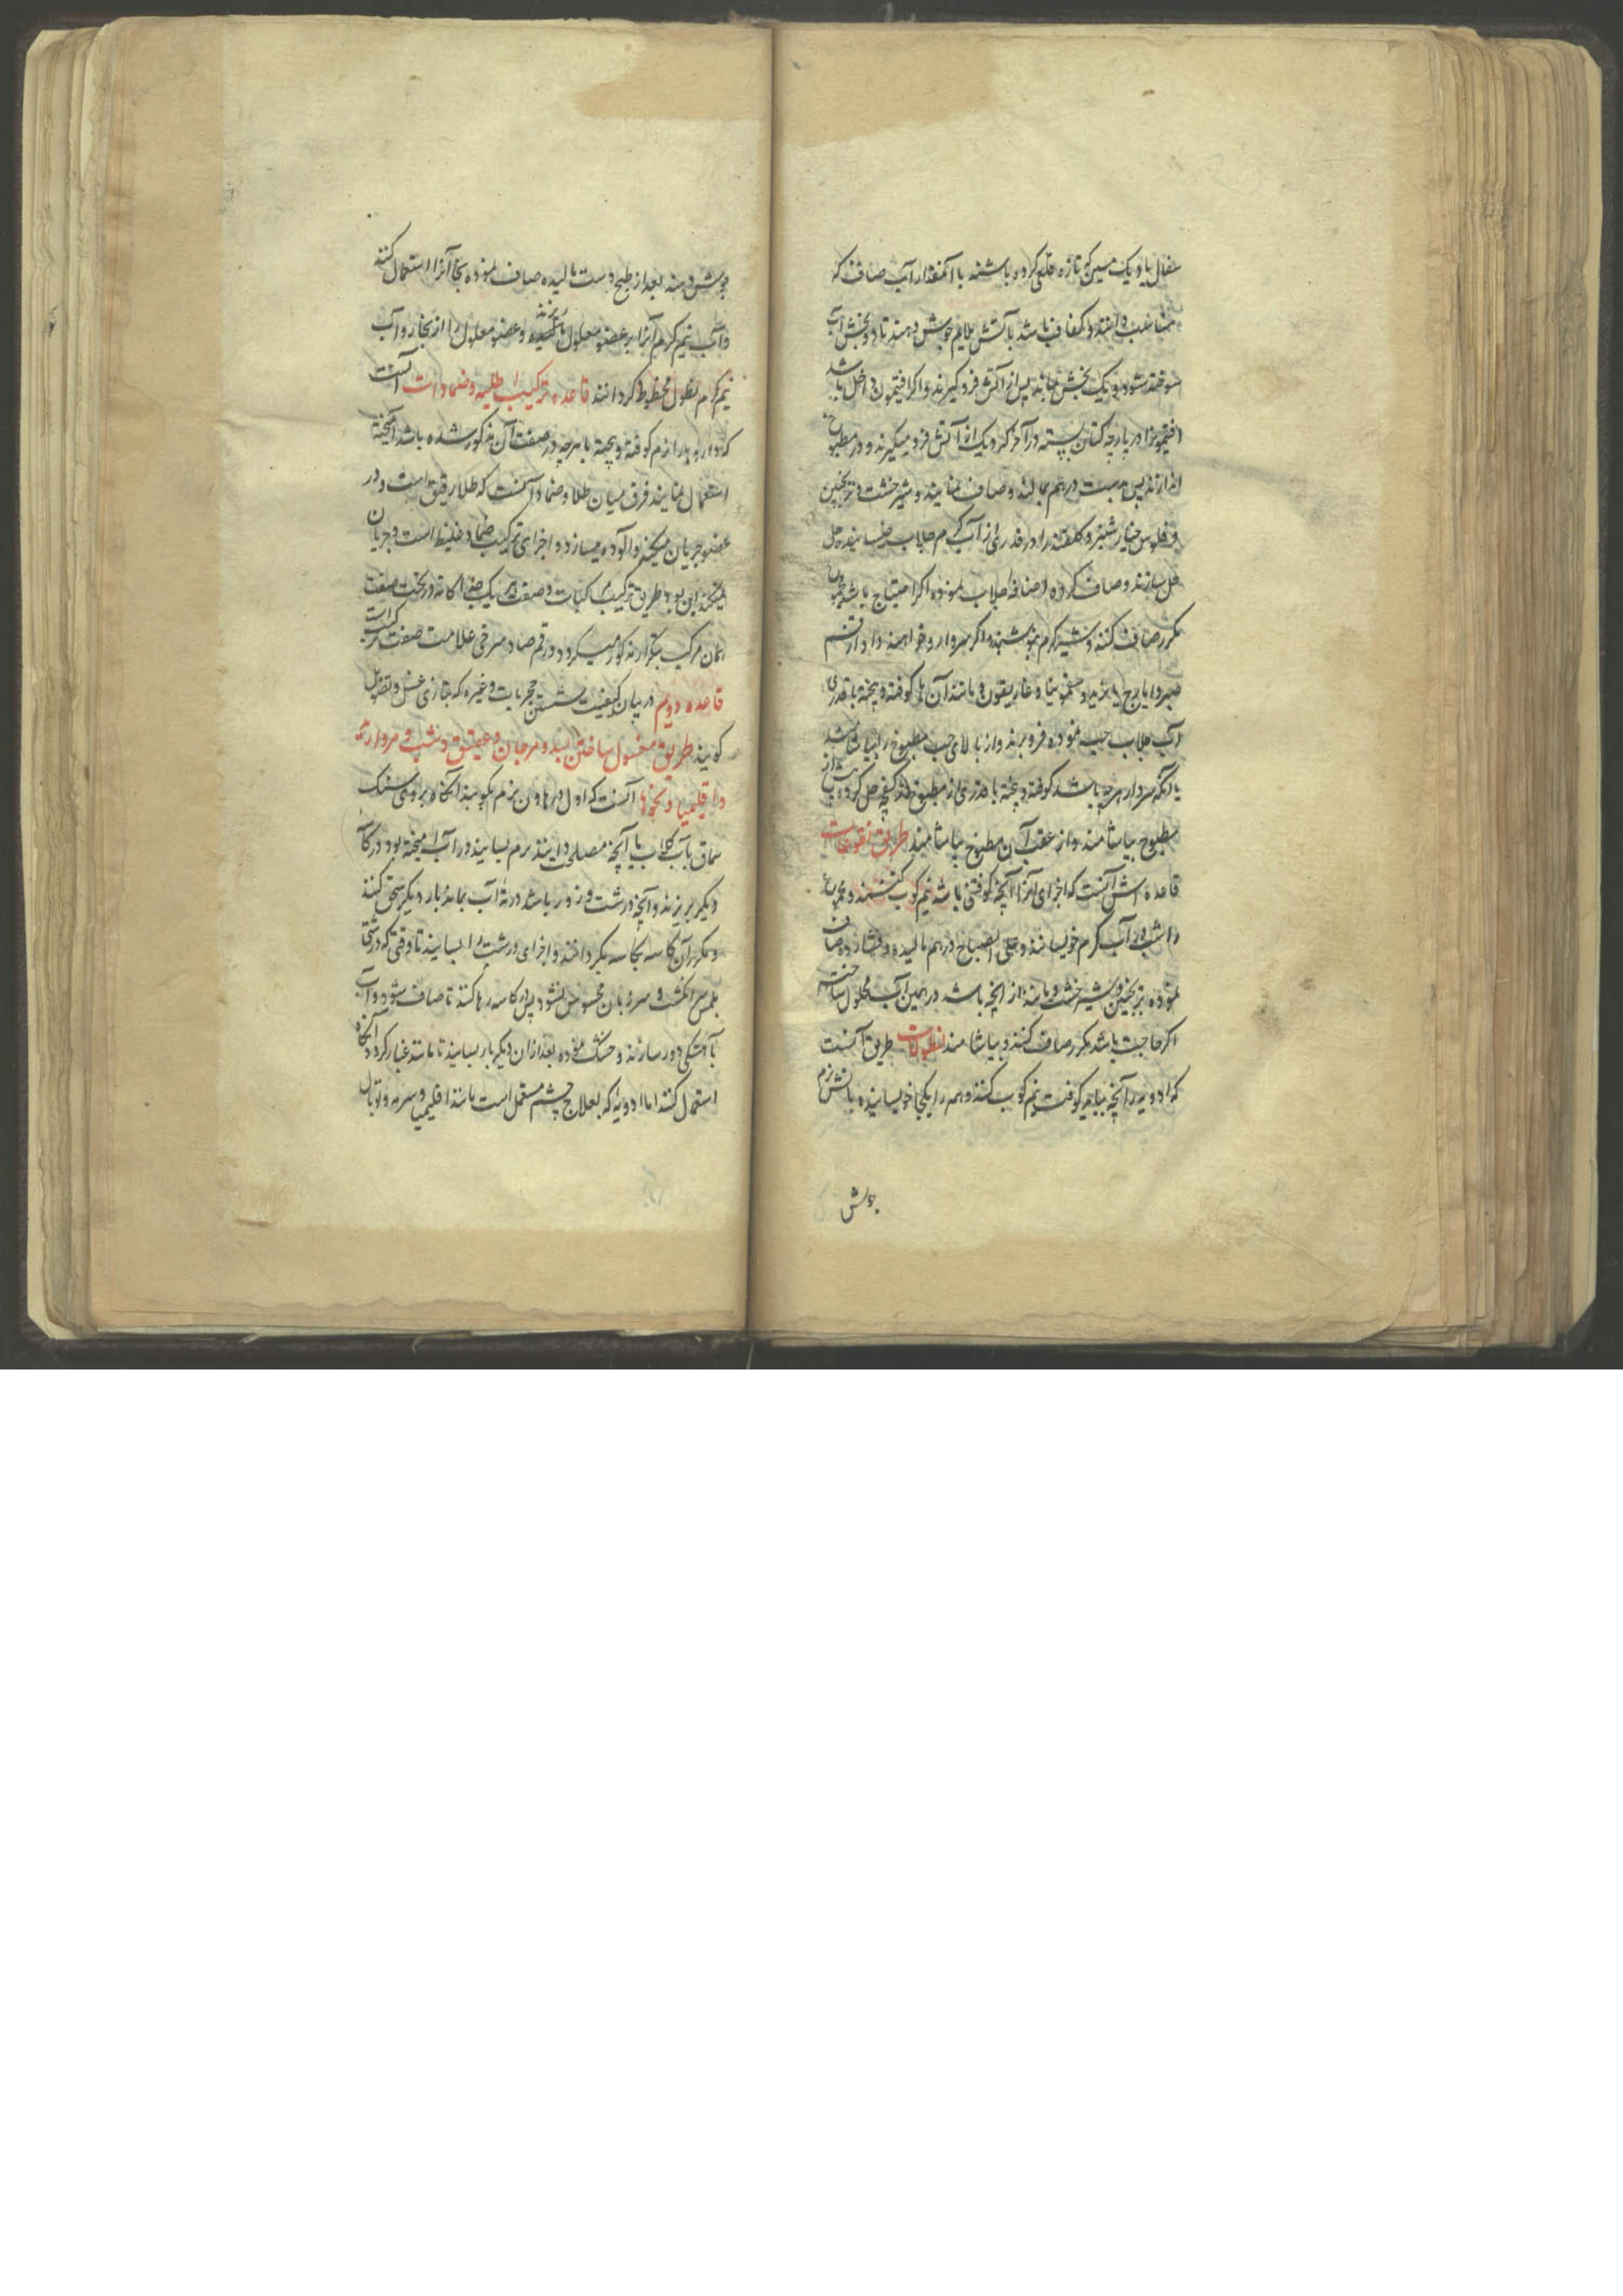 سفال یا دیک مسین که تازه قلعی کرده باشند با آنمقدار آب صاف که
مناسب دانند و کفاف باشد بآتش ملایم جوش دهند تا دو بخش آب
سوخته شود و یک بخش بماند پس از آتش فرو گیرند و اگر افتیمون داخل باشد
افتیمونرا در پارچه کتان بسته در آخر که دیک از آتش فرو میگیرند در مطبوخ
اندازند پس بدست درهم بمالند و صاف نمایند و شیرخشت و ترنجبین
و فلوس خیارشنبر و گلقند را در قدری از آب گرم جلاب خیسانیده حل
حل سازند و صاف کرده اضافه جلاب نموده اگر احتیاج باشد
مکرر صاف کنند و شیرگرم بنوشند و اگر سردارو خواهند داد از قسم
صبر و ایارج فیقرا و سقمونیا و غاریقون و مانند آن را کوفته و بیخته با قدری
آب جلاب حب نموده فرو برند و از بالای حب مطبوخ را بیاشامند
یا آنکه سردارو هرچه باشد کوفته و بیخته با قدری از مطبوخ در کفچه حل کرده پیش از
مطبوخ بیاشامند و از عقب آن مطبوخ بیاشامند طریق نقوعات
قاعده اش آنست که اجزای آنرا آنچه کوفتنی باشد نیم کوب کنند و مجموع
را شب در آب گرم خویسانند و علی الصباح درهم مالیده و فشارده صاف
نموده ترنجبین و شیرخشت و مانند آن آنچه باشد در همین آب محلول ساخته
اگر حاجت باشد مکرر صاف کنند و بیاشامند نطولات طریق آنست
که ادویه را آنچه بباید کوفت نیم کوب کنند و همه را یکجا خویسانیده بآتش نرم
جوش
جوش دهند بعد از طبخ دست مالیده صاف نموده بجا آنرا استعمال کنند
و آب نیم گرم آنرا بر عضو معلول بریزند و عضو معلول را از بخار و آب
نیم گرم نطول محظوظ گردانند قاعده ترکیب اطلیه و ضمادات آنست
که داروها را نرم کوفته و بیخته با هرچه در صفت آن مذکور شده باشد آمیخته
استعمال نمایند فرق میان طلا و ضماد آنست که طلا رقیق است و در
عضو جریان میکند و آلوده میسازد و اجزای ترکیب ضماد غلیظ است و جریان
نمیکند این بود طریق ترکیب مرکبات و صفت هر یک جداگانه در تحت صفت
همان مرکب بتکرار مذکور میگردد و رقم صاد سرخی علامت صفت مرکب است
قاعده دویم در بیان کیفیت شستن حجریات و غیره که بتازی غسل و تصویل
گویند طریق مغسول ساختن بسد و مرجان و عقیق و یشب و مروارید
و اقلیمیا و نحوها آنست که اول در هاون نرم بکوبند آنگاه بر روی سنک
سماق بآب گلاب یا آنچه مصلحت دانند نرم بسایند و در آب آمیخته بود در کاسه
دیگر بریزند و آنچه درشت و زور باشد در ته آب بماند بار دیگر سحق کنند
و مکرر آن کاسه بکاسه بگردانند و اجزای درشت را بسایند تا وقتی که درشتی
بلمس سر انگشت و سر زبان محسوس نشود پس در کاسه رها کنند تا صاف شود و آب
بآهستگی دور سازند و خشک نموده بعد از آن دیگر بار بسایند تا مانند غبار گردد آنگاه
استعمال کنند اما ادویه که بعلاج چشم مستعمل است مانند اقلیمیا و سرمه و توبال